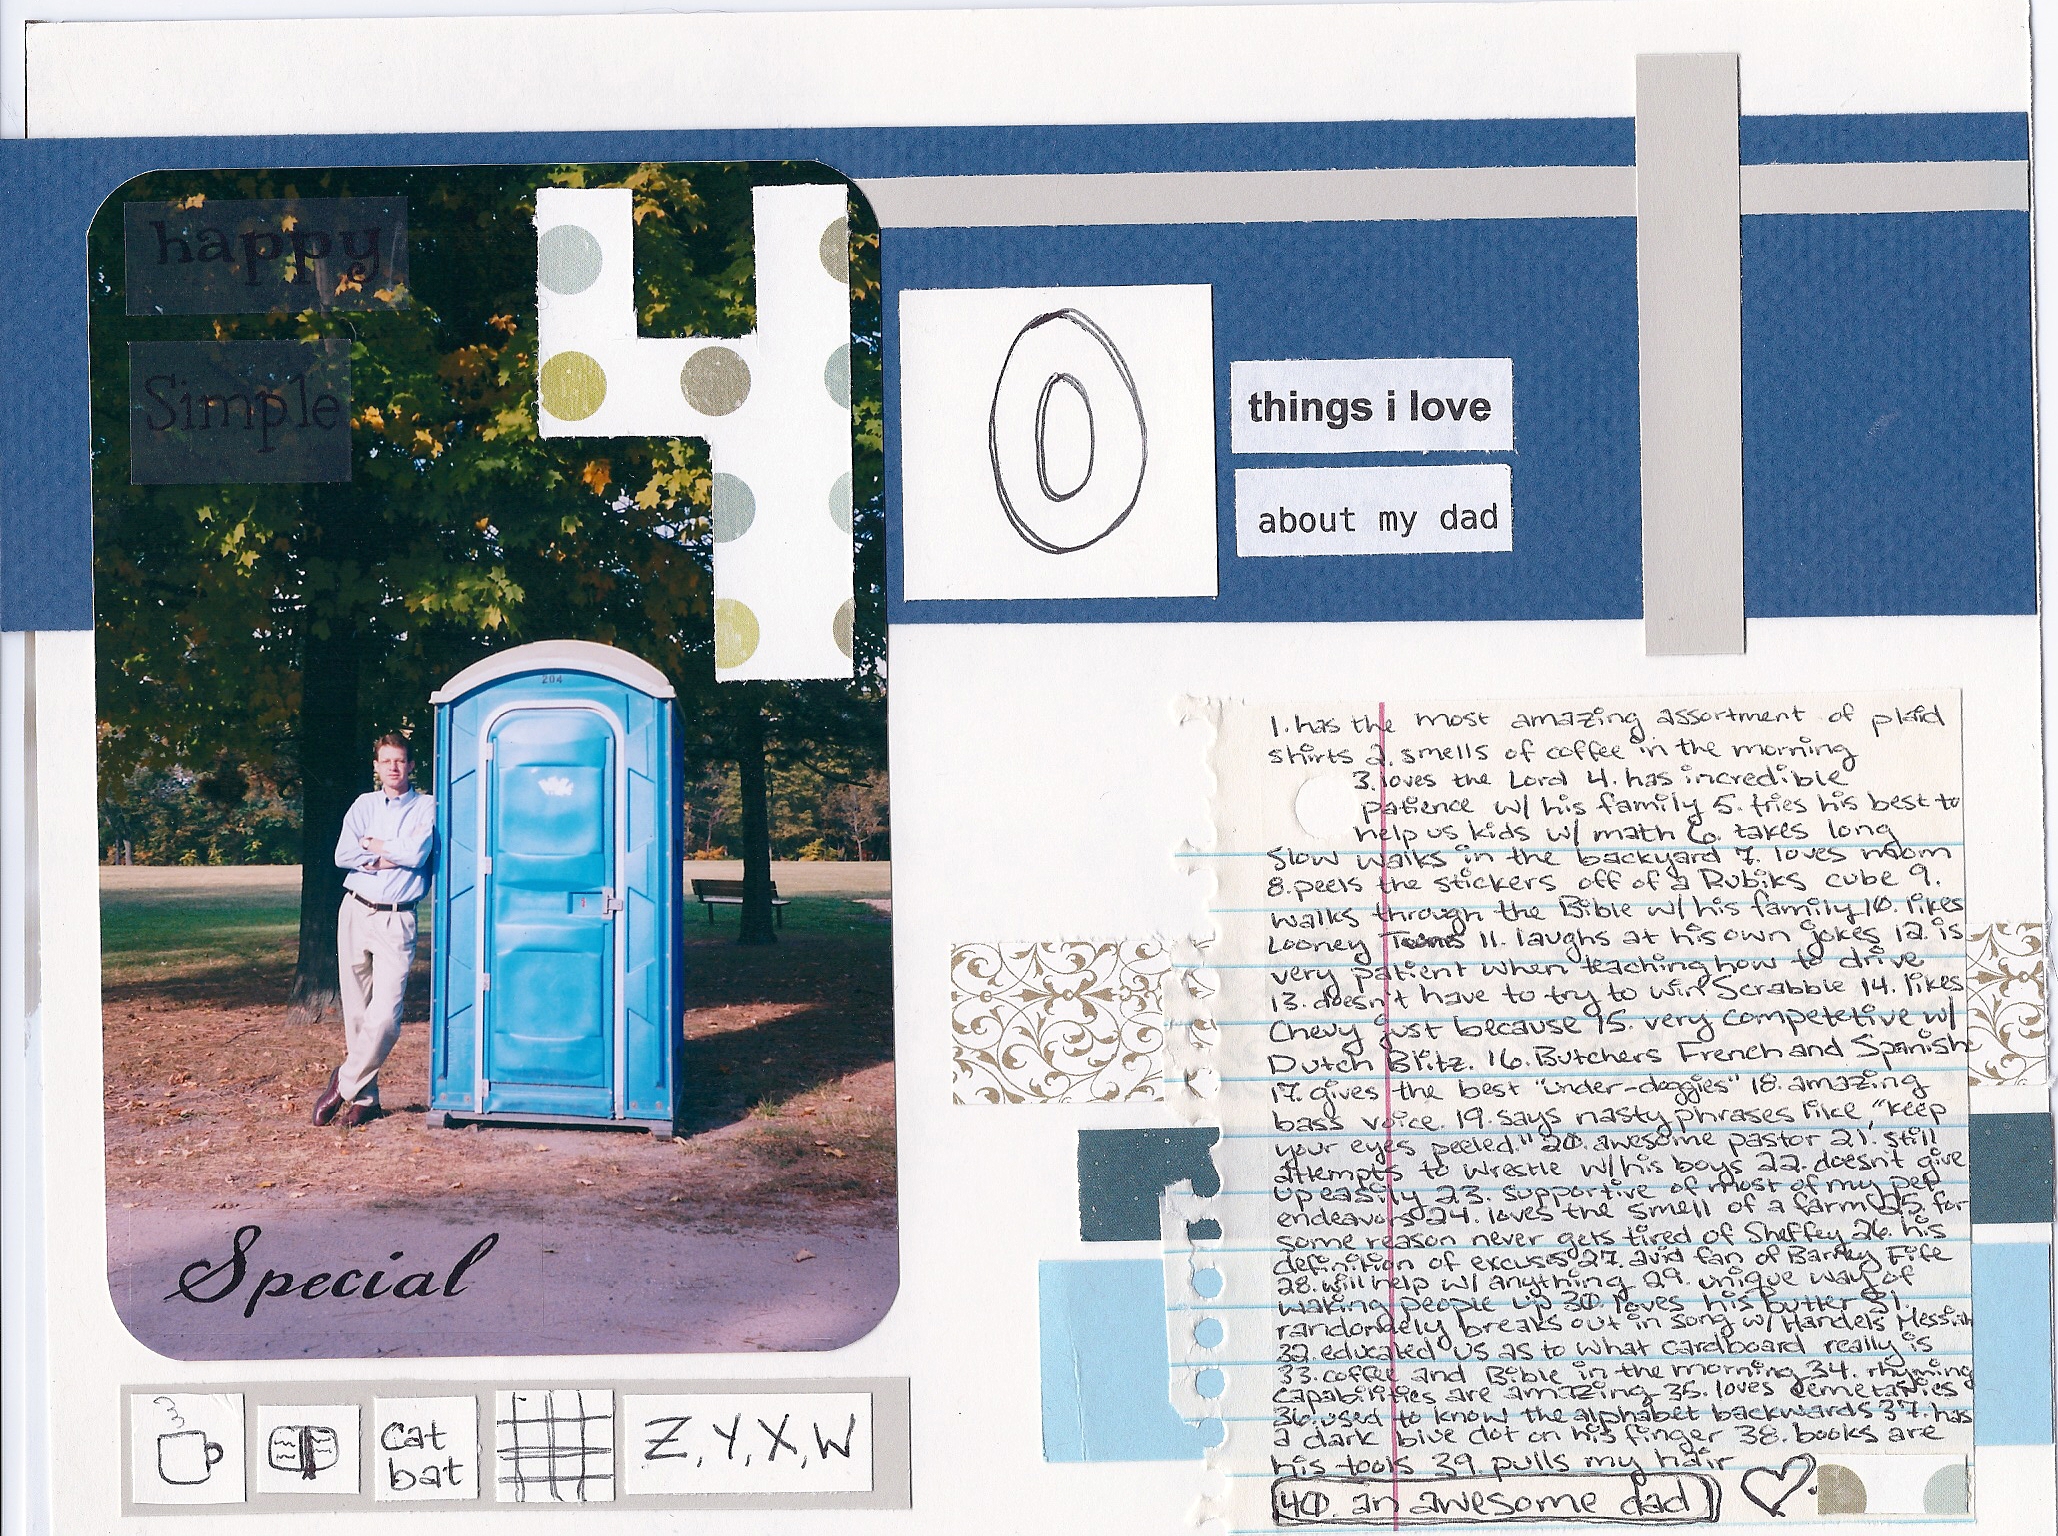 happy
Simple
4
0
things i love
about my dad
204
Special
Cat
bat
Z, Y, X, W
1. has the most amazing assortment of plaid
shirts 2. smells of coffee in the morning
3. loves the Lord 4. has incredible
patience w/ his family 5. tries his best to
help us kids w/ math 6. takes long
slow walks in the backyard 7. loves mom
8. peels the stickers off of a Rubiks cube 9.
walks through the Bible w/ his family 10. likes
Looney Toons 11. laughs at his own jokes 12. is
very patient when teaching how to drive
13. doesn't have to try to win Scrabble 14. likes
Chevy just because 15. very competetive w/
Dutch Blitz. 16. Butchers French and Spanish
17. gives the best "under-doggies" 18. amazing
bass voice. 19. says nasty phrases like "keep
your eyes peeled." 20. awesome pastor 21. still
attempts to wrestle w/ his boys 22. doesn't give
up easily 23. supportive of most of my pet
endeavors 24. loves the smell of a farm 25. for
some reason never gets tired of Sheffey 26. his
definition of excuses 27. avid fan of Barney Fife
28. will help w/ anything 29. unique way of
waking people up 30. loves his butter 31.
randomely breaks out in song w/ Handels Messiah
32. educated us as to what cardboard really is
33. coffee and Bible in the morning 34. rhyming
capabilities are amazing 35. loves cemetaries
36. used to know the alphabet backwards 37. has
a dark blue dot on his finger 38. books are
his tools 39. pulls my hair
40. an awesome dad